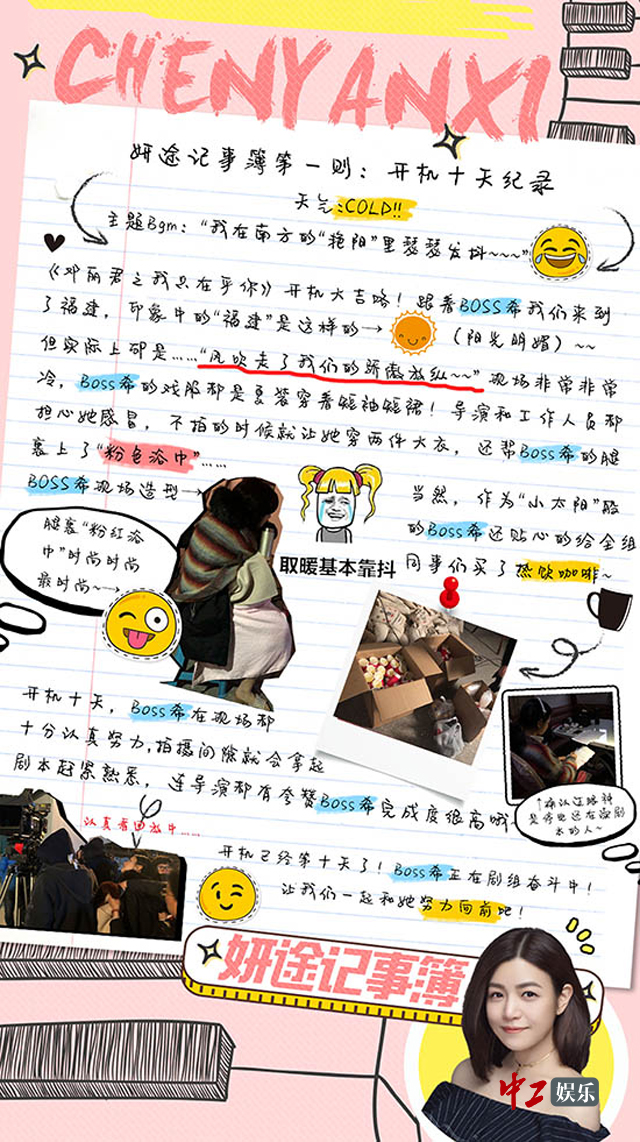 CHENYANXI
妍途记事簿第一则：开机十天纪录
天气：COLD!!
主题Bgm：“我在南方的“艳阳”里瑟瑟发抖~~~”
《邓丽君之我只在乎你》开机大吉咯！跟着BOSS希我们来到
了福建，印象中的“福建”是这样的→（阳光明媚）~~
但实际上却是……“风吹走了我们的骄傲放纵~~”现场非常非常
冷，BOSS希的戏服都是夏装穿着短袖短裙！导演和工作人员都
担心她感冒，不拍的时候就让她穿两件大衣，还帮BOSS希的腿
裹上了“粉色浴巾”……
BOSS希现场造型→
当然，作为“小太阳”般
的BOSS希还贴心的给全组
同事们买了热饮咖啡~
腿裹“粉红浴
巾”时尚时尚
最时尚~
取暖基本靠抖
开机十天，BOSS希在现场都
十分认真努力,拍摄间隙就会拿起
剧本赶紧熟悉，连导演都有夸赞BOSS希完成度很高哦
认真看回放中……
开机已经第十天了！BOSS希正在剧组奋斗中！
让我们一起和她努力向前吧！
妍途记事簿
中工娱乐